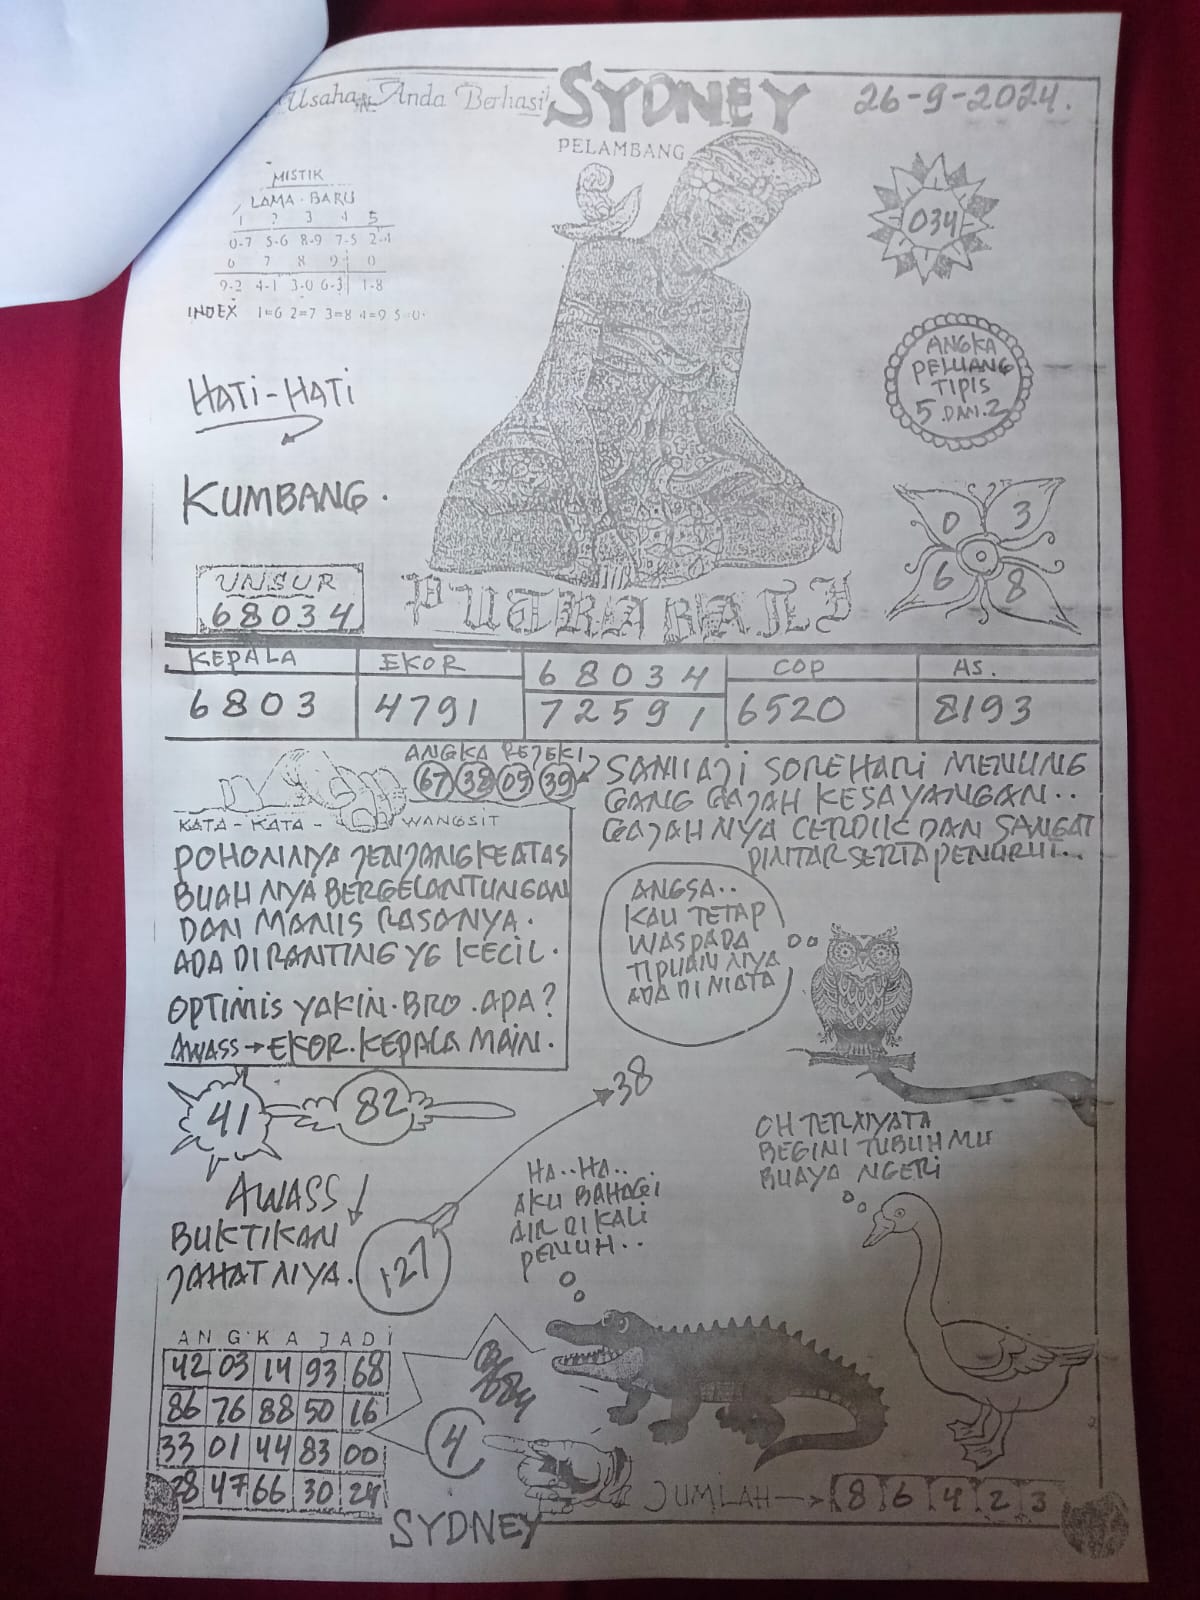 Usaha Anda Berhasil
SYDNEY
26-9-2024.
PELAMBANG
MISTIK
LAMA - BARU
1 2 3 4 5
0-7 5-6 8-9 7-5 2-4
6 7 8 9 0
9-2 4-1 3-0 6-3 1-8
INDEX 1=6 2=7 3=8 4=9 5=0
034
ANGKA
PELUANG
TIPIS
5 DAN 2
HATI-HATI
KUMBANG.
0 3
6 8
UNSUR
68034
PUTRA BALI
KEPALA EKOR 68034 COP AS.
6803 4791 72591 6520 8193
ANGKA REJEKI
67 38 09 39
KATA - KATA - WANGSIT
POHONNYA JENJANG KEATAS
BUAH NYA BERGELANTUNGAN
DAN MANIS RASANYA.
ADA DI RANTING YG KECIL.
OPTIMIS YAKIN. BRO. APA?
AWASS → EKOR. KEPALA MAIN.
SOREHARI MENUNG
GANG GAJAH KESAYANGAN..
GAJAHNYA CERDIK DAN SANGAT
PINTAR SERTA PENURUT...
ANGSA..
KAU TETAP
WASPADA
TIPUAN NYA
ADA DI MATA
41 82
38
AWASS
BUKTIKAN
JAHATNYA.
127
HA..HA..
AKU BAHAGI
AIR DI KALI
PENUH..
OH TERNYATA
BEGINI TUBUHMU
BUAYA NGERI
ANGKA JADI
42 03 14 93 68
86 76 88 50 16
33 01 44 83 00
28 47 66 30 24
4
JUMLAH → 8 6 4 2 3
SYDNEY